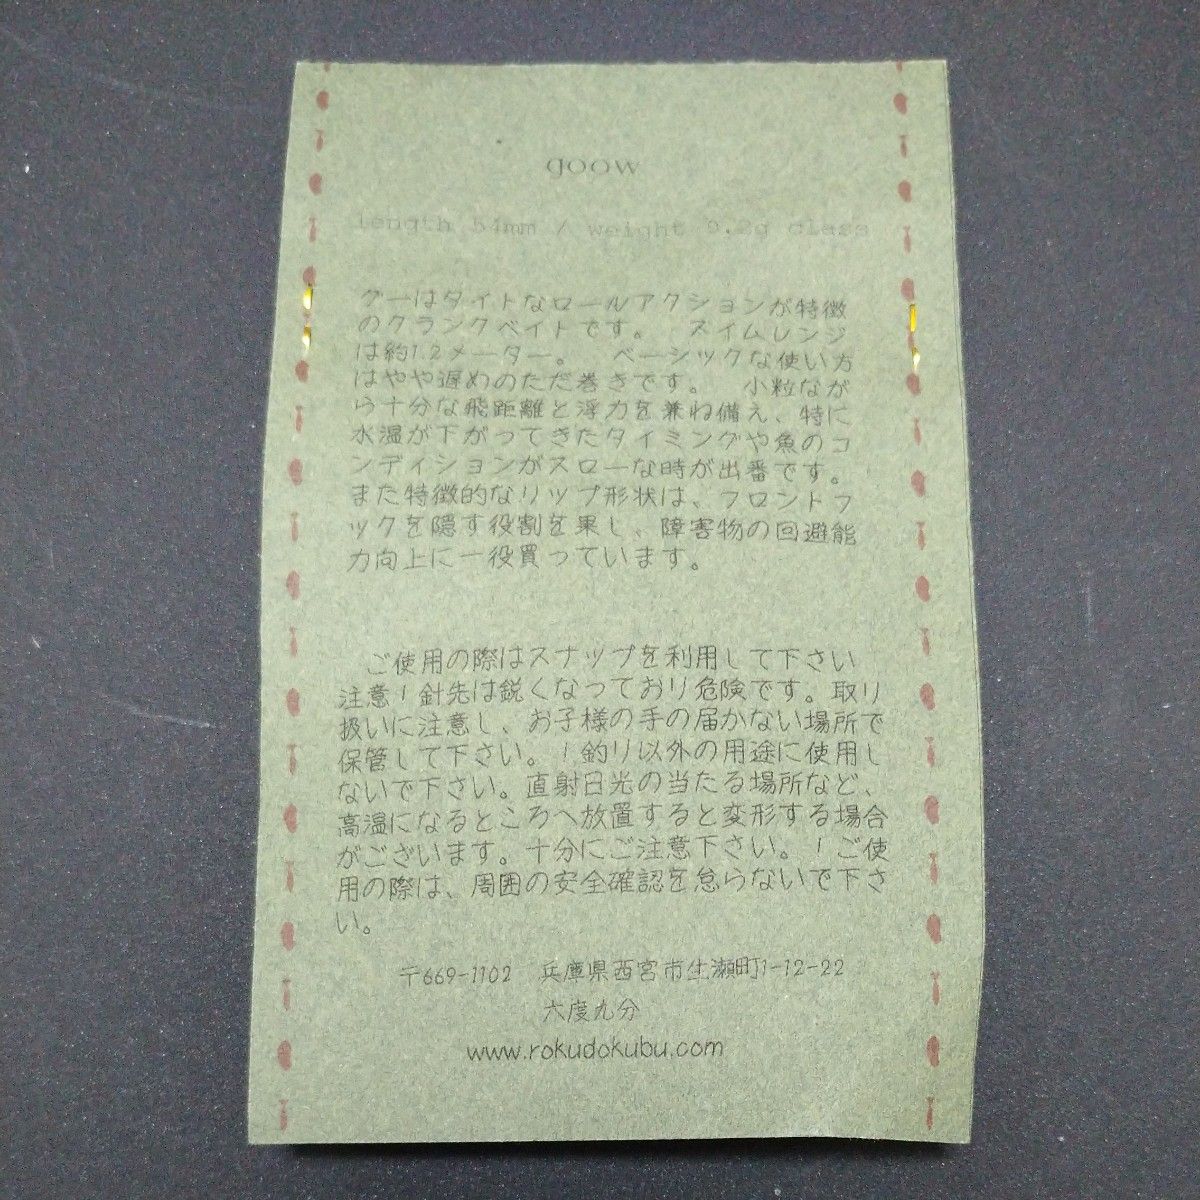 goow
length 54mm / weight 9.2g class
グーはタイトなロールアクションが特徴
のクランクベイトです。 スイムレンジ
は約1.2メーター。 ベーシックな使い方
はやや遅めのただ巻きです。 小粒なが
ら十分な飛距離と浮力を兼ね備え、特に
水温が下がってきたタイミングや魚のコ
ンディションがスローな時が出番です。
また特徴的なリップ形状は、フロントフ
ックを隠す役割を果し、障害物の回避能
力向上に一役買っています。
ご使用の際はスナップを利用して下さい
注意！針先は鋭くなっており危険です。取り
扱いに注意し、お子様の手の届かない場所で
保管して下さい。！釣り以外の用途に使用し
ないで下さい。直射日光の当たる場所など、
高温になるところへ放置すると変形する場合
がございます。十分にご注意下さい。！ご使
用の際は、周囲の安全確認を怠らないで下さ
い。
〒669-1102 兵庫県西宮市生瀬町1-12-22
六度九分
www.rokudokubu.com